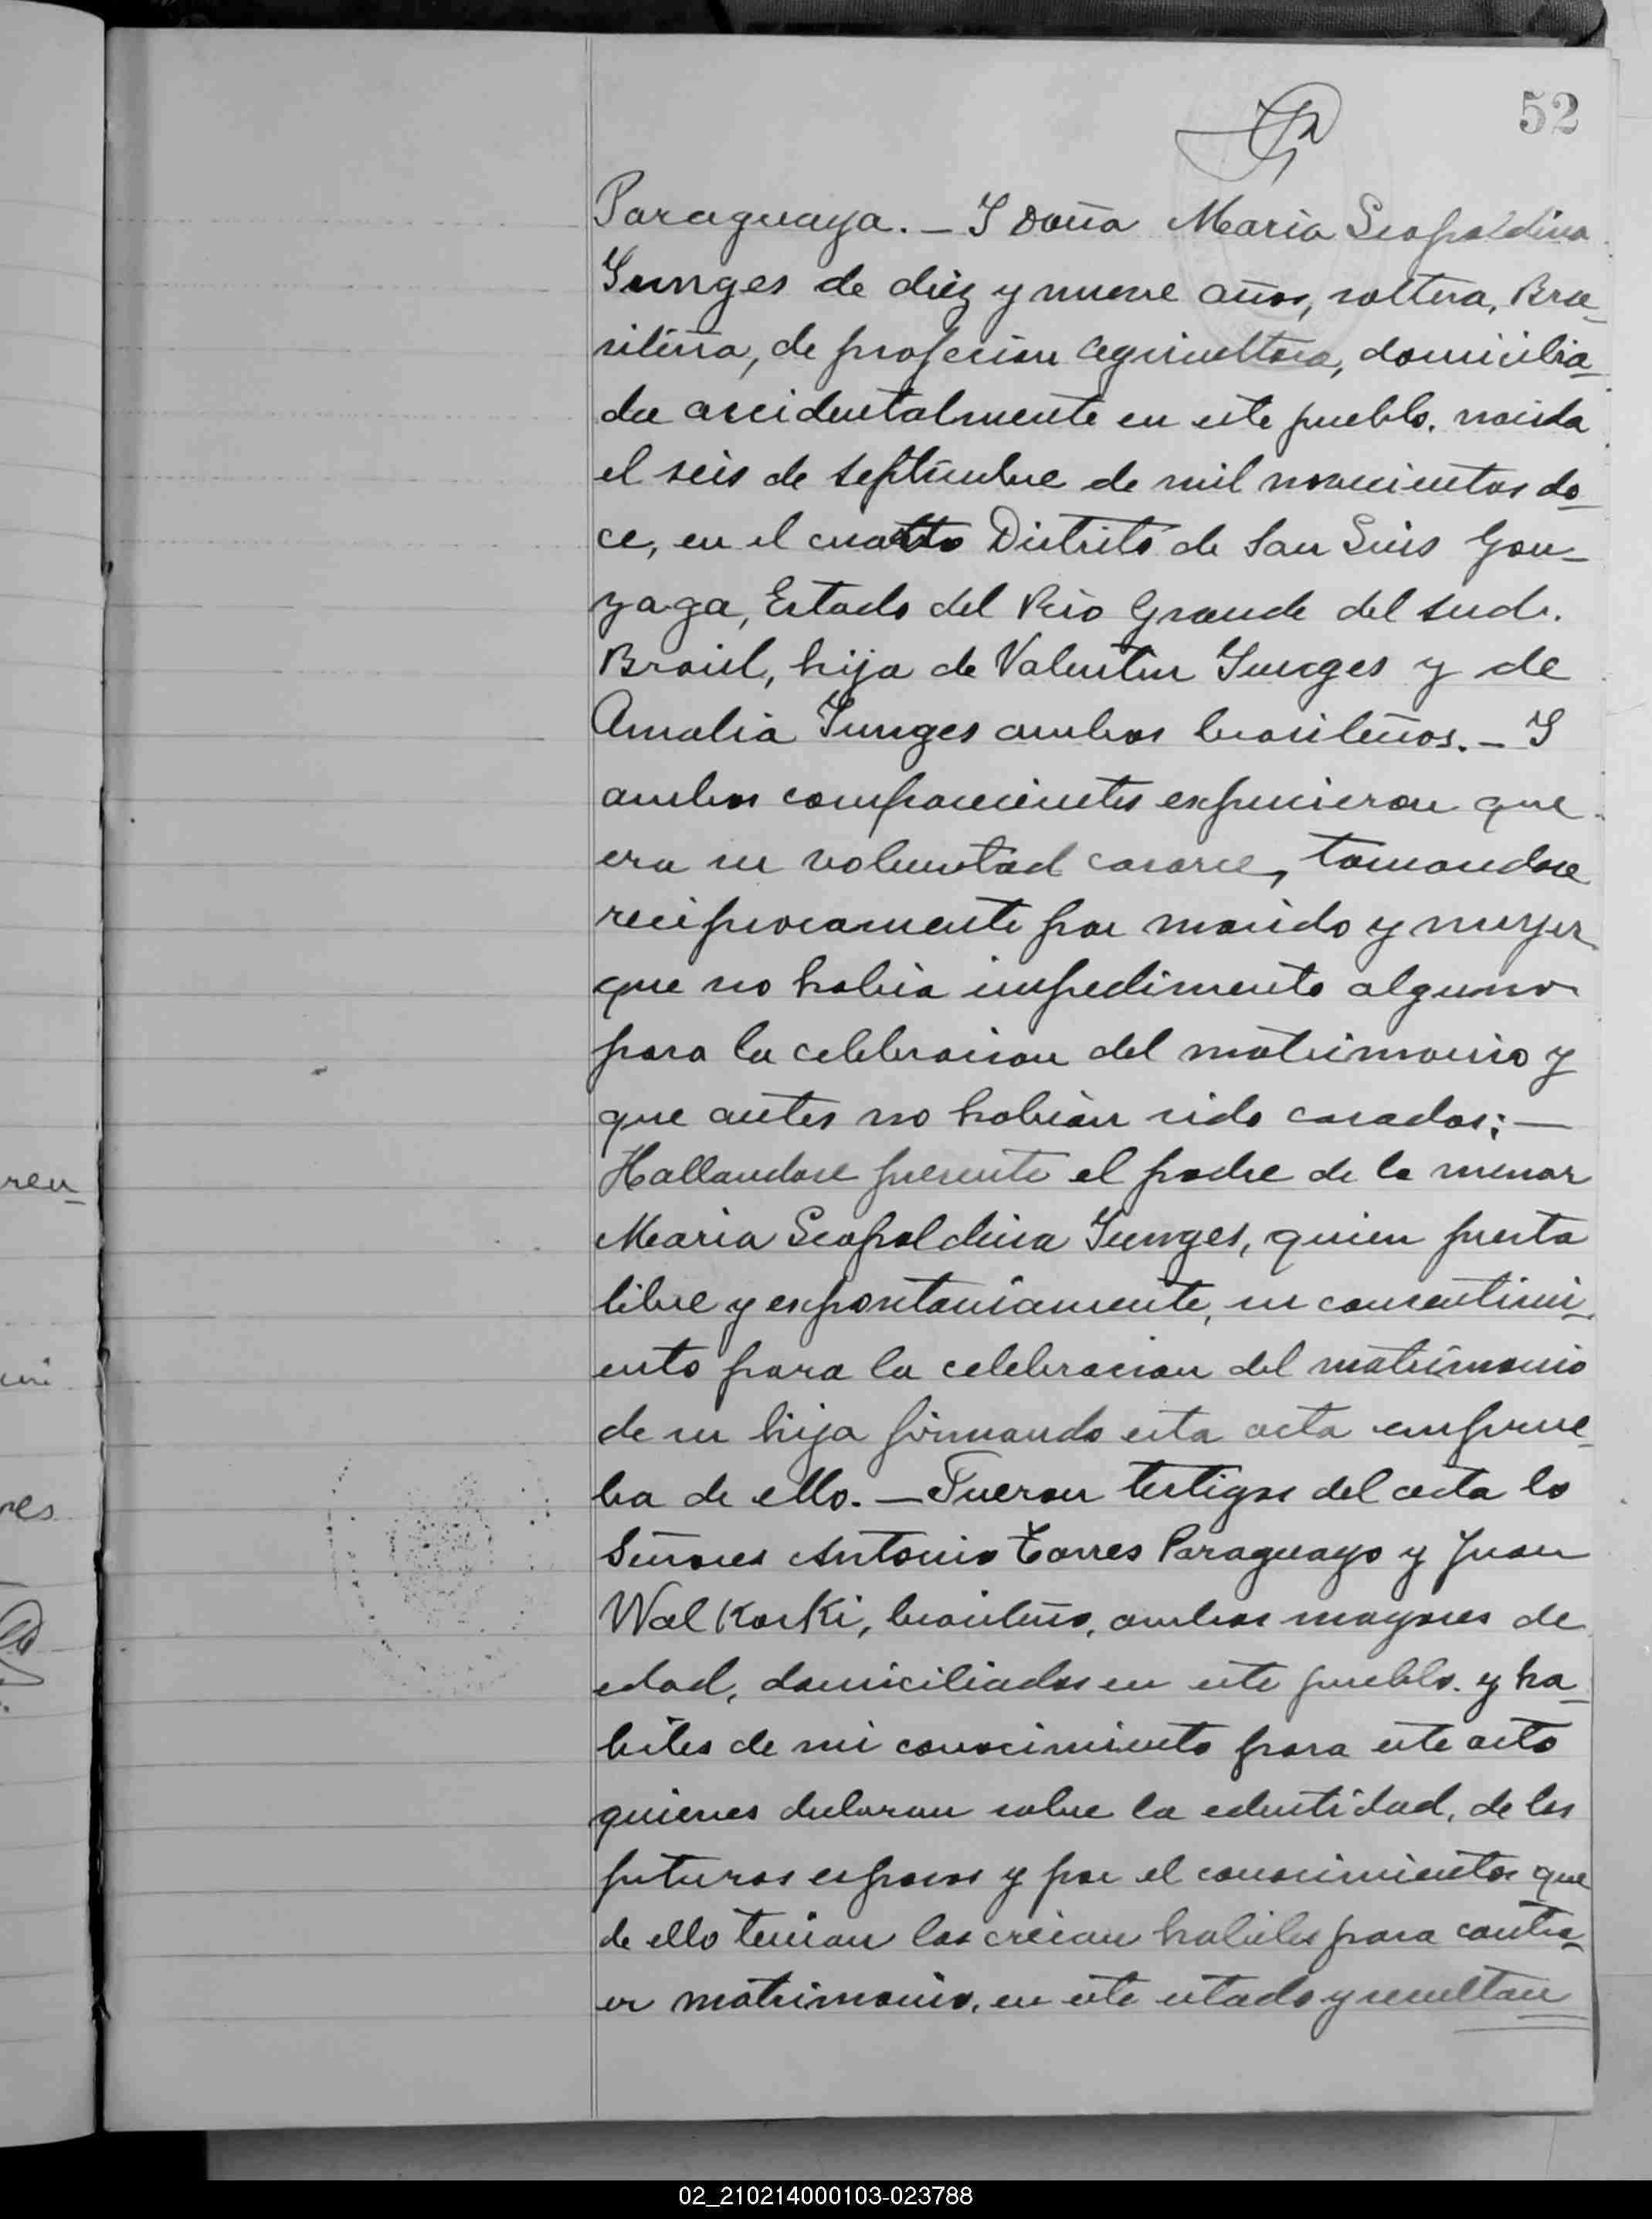 52
Paraguaya. — Y Doña Maria Leopoldina
Yunges de diez y nueve años, soltera, Bra-
sileña, de profesion agricultora, domicilia-
da accidentalmente en este pueblo. nacida
el seis de septiembre de mil novecientos do-
ce, en el cuarto Distrito de San Luis Gon-
zaga, Estado del Rio Grande del sud.
Brasil, hija de Valentin Yunges y de
Amalia Yunges ambos brasileños. — Y
ambos comparecientes expusieron que
era su voluntad casarse, tomandose
reciprocamente por marido y mujer
que no habia impedimento alguno
para la celebracion del matrimonio y
que antes no habian sido casados; —
Hallandose presente el padre de la menor
Maria Leopoldina Yunges, quien presta
libre y espontaniamente, su consentimi-
ento para la celebracion del matrimonio
de su hija firmando esta acta en prue-
ba de ello. — Fueron testigos del acta lo
Señores Antonio Torres Paraguayo y Juan
Wal Koski, brasileño, ambos mayores de
edad, domiciliados en este pueblo. y ha-
biles de mi conocimiento para este acto
quienes declaran sobre la edentidad, de los
futuros esposos y por el conocimientos que
de ello tenian los creian habiles para contra-
er matrimonio, en este estado y resultan
ren-
res
02_210214000103-023788